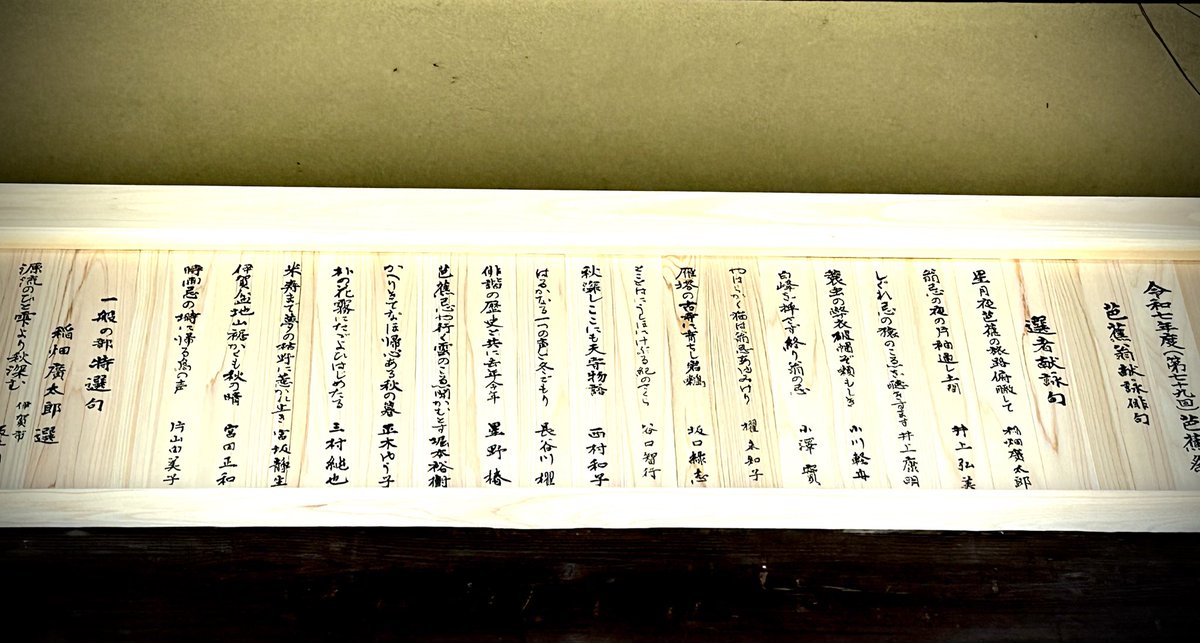 令和七年度(第七十九回)芭蕉祭
芭蕉翁献詠俳句
選者献詠句
星月夜芭蕉の旅路俯瞰して 稲畑廣太郎
翁忌の夜の片袖通し土間 井上弘美
しぐれ忌の猿のこゑに聴きすます 井上康明
蓑虫の弊衣破帽ぞ頼もしき 小川軽舟
白峰を拝さず終り翁の忌 小澤實
やはらかく猫は 櫂未知子
雁塔の古寺に育ちし岩鶲 坂口緑志
谷口智行
秋深しここにも天守物語 西村和子
はるかなる一つの声こそ冬ごもり 長谷川櫂
俳諧の歴史と共に去年今年 星野椿
芭蕉忌や行く雲のこゑ聞かむとす 堀本裕樹
かへりきてなほ帰心ある秋の暮 正木ゆう子
朴の花霧にたゞよひはじめたる 三村純也
米寿まで夢の枯野に惹かれ生き 宮坂静生
伊賀盆地山裾かども秋の晴 宮田正和
時雨忌の塒に帰る鳥の声 片山由美子
一般の部特選句
稲畑廣太郎 選
源流のひと雫より秋深む 伊賀市